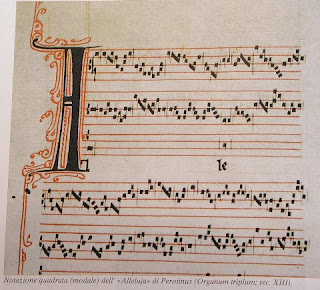 A l le
Notazione quadrata (modale) dell' «Alleluja» di Perotinus (Organum triplum; sec. XIII).